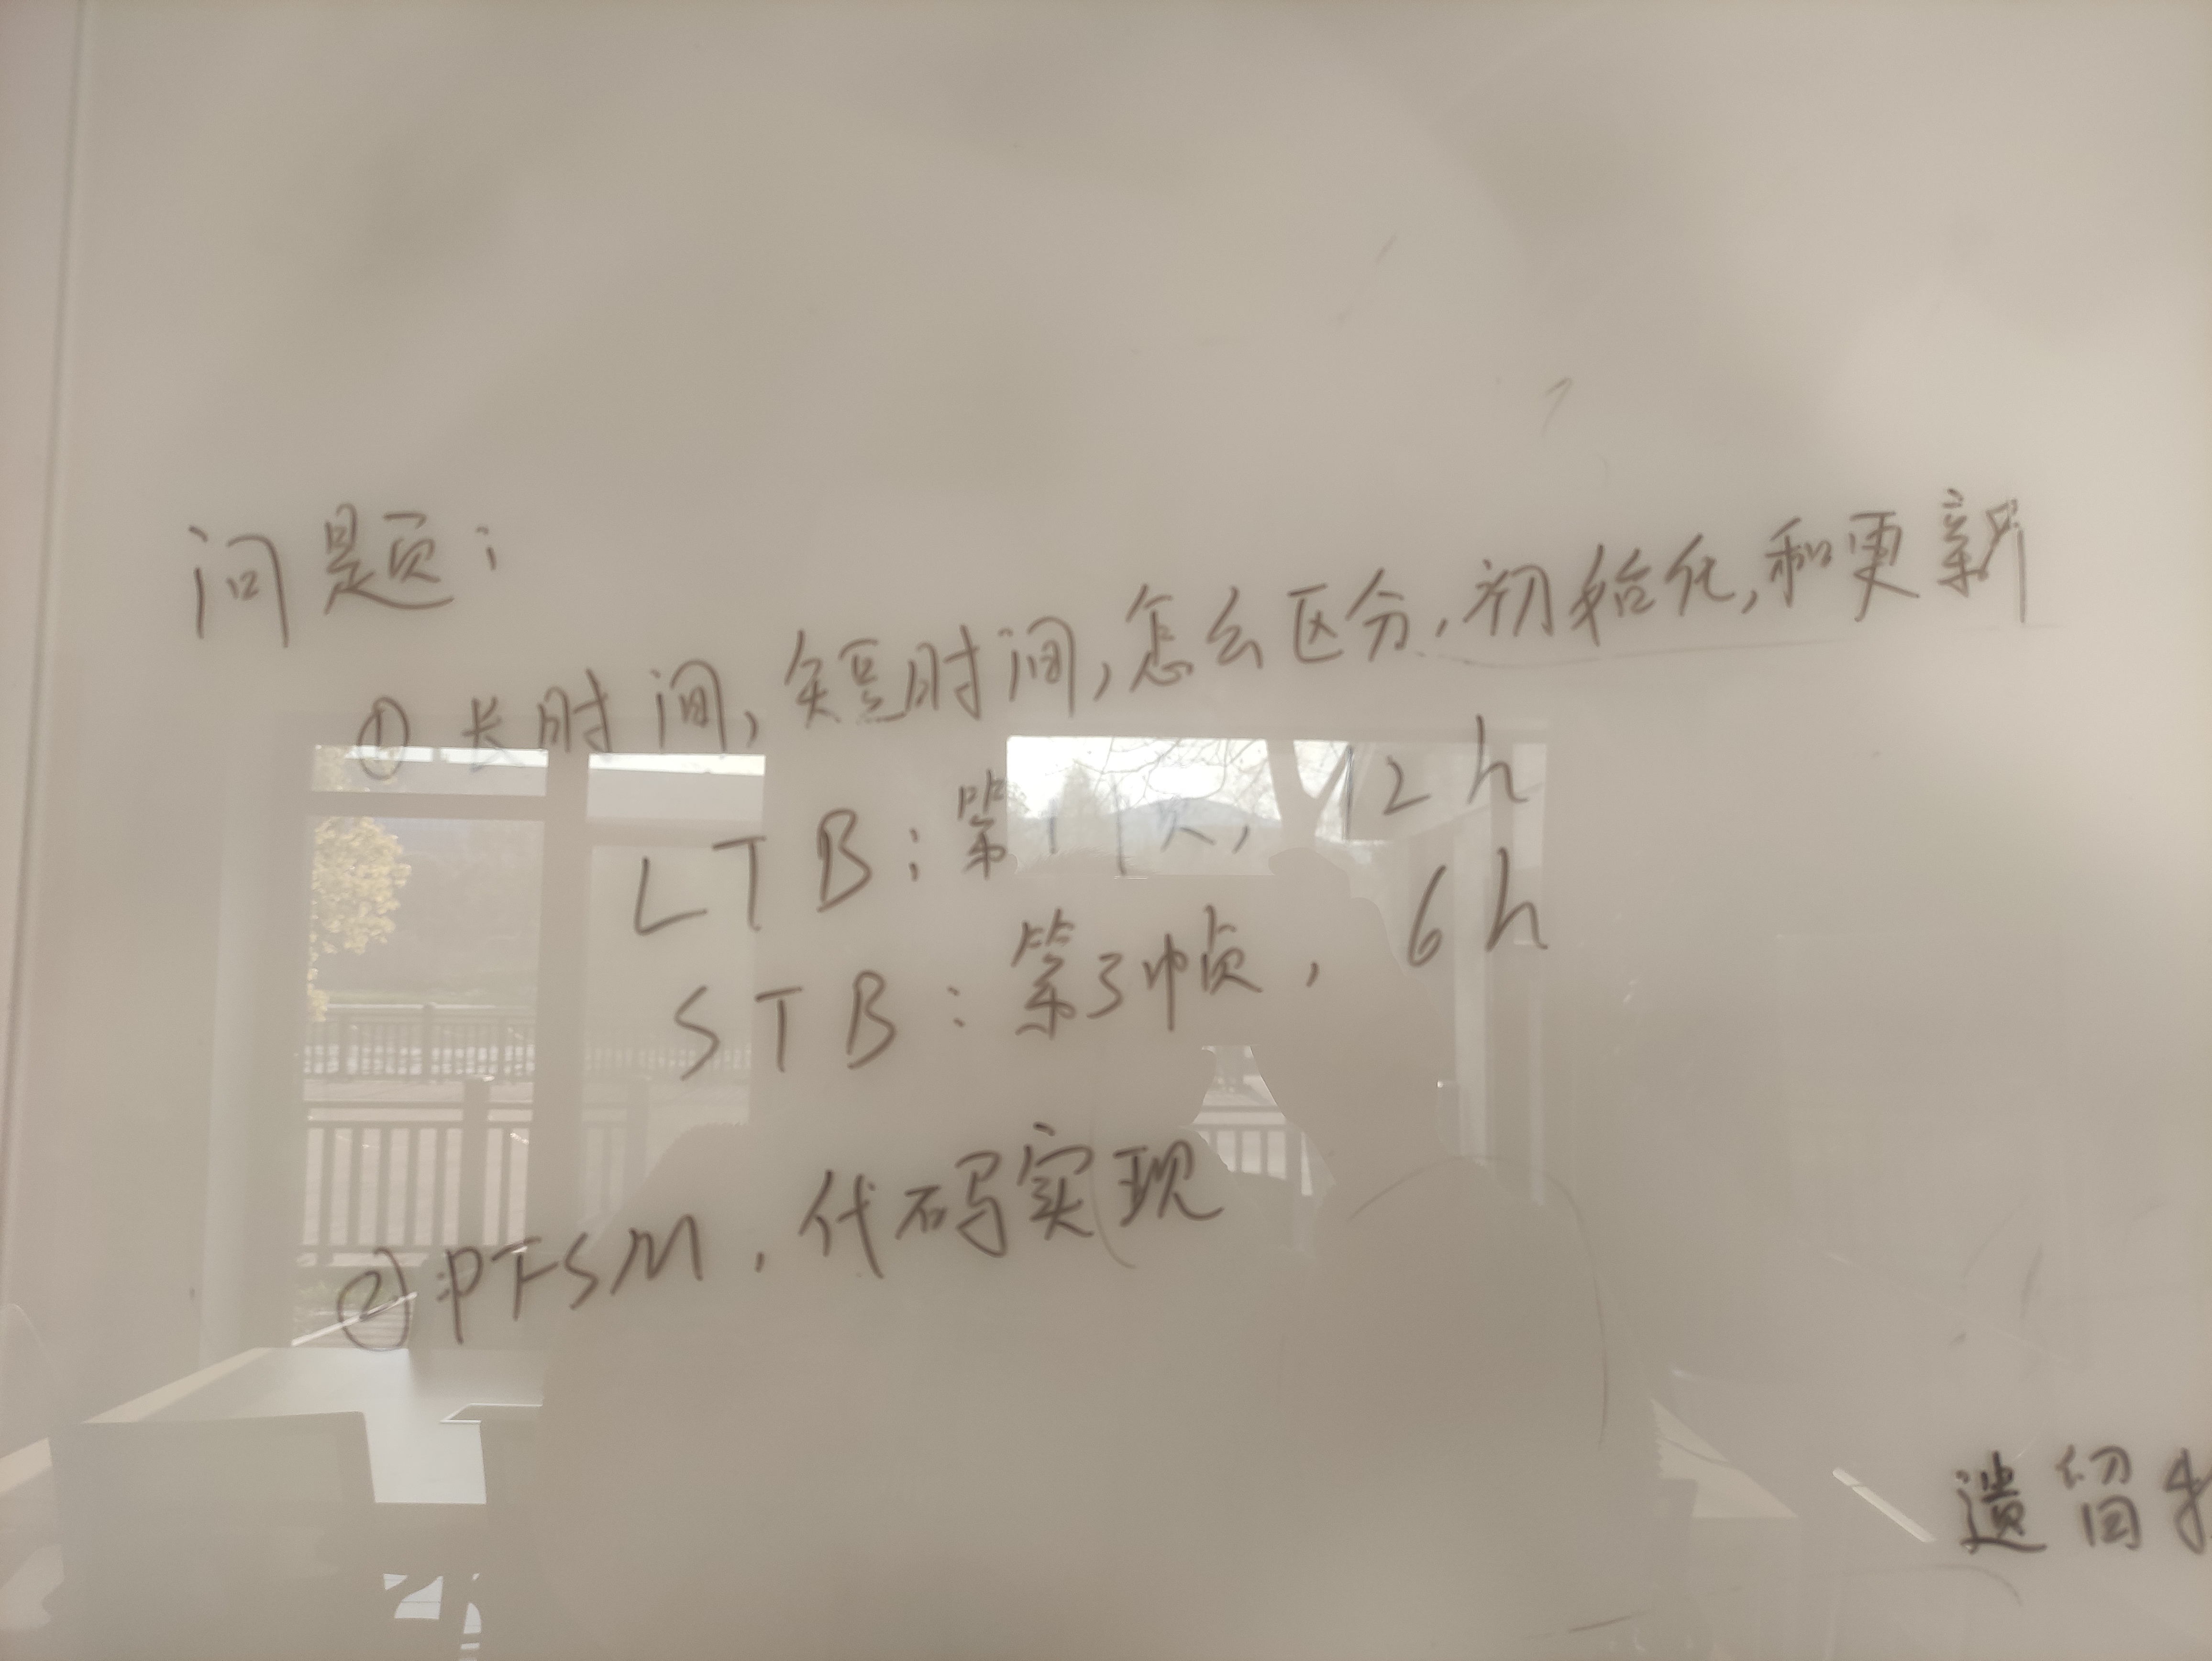 问题:
① 长时间,短时间,怎么区分,初始化,和更新
LTB:第1帧,12h
STB:第3帧,6h
② PTSM,代码实现
遗留